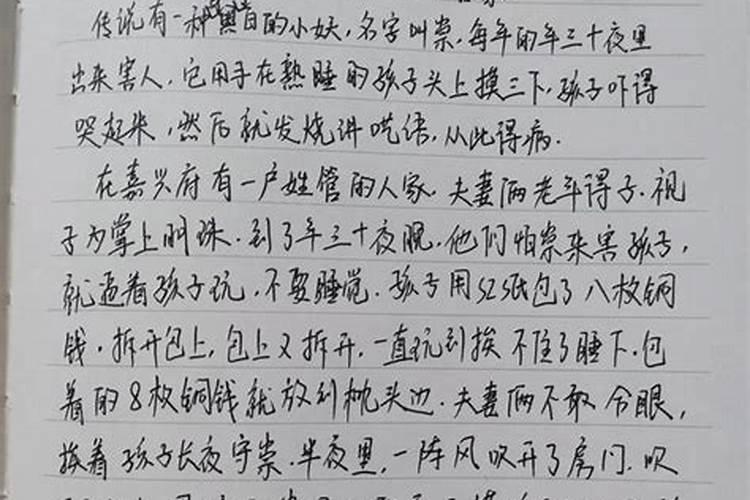 传说有一种黑身白的小妖,名字叫祟,每年的年三十夜里
出来害人,它用手在熟睡的孩子头上摸三下,孩子吓得
哭起来,然后就发烧讲呓语,从此得病.
在嘉兴府有一户姓管的人家.夫妻俩老年得子.视
子为掌上明珠.到了年三十夜晚,他们怕祟来害孩子,
就逼着孩子玩,不要睡觉.孩子用红纸包了八枚铜
钱.拆开包上,包上又拆开,一直玩到挨不住了睡下.包
着的8枚铜钱就放到枕头边.夫妻俩不敢合眼,
挨着孩子长夜守祟.半夜里,一阵风吹开了房门.吹